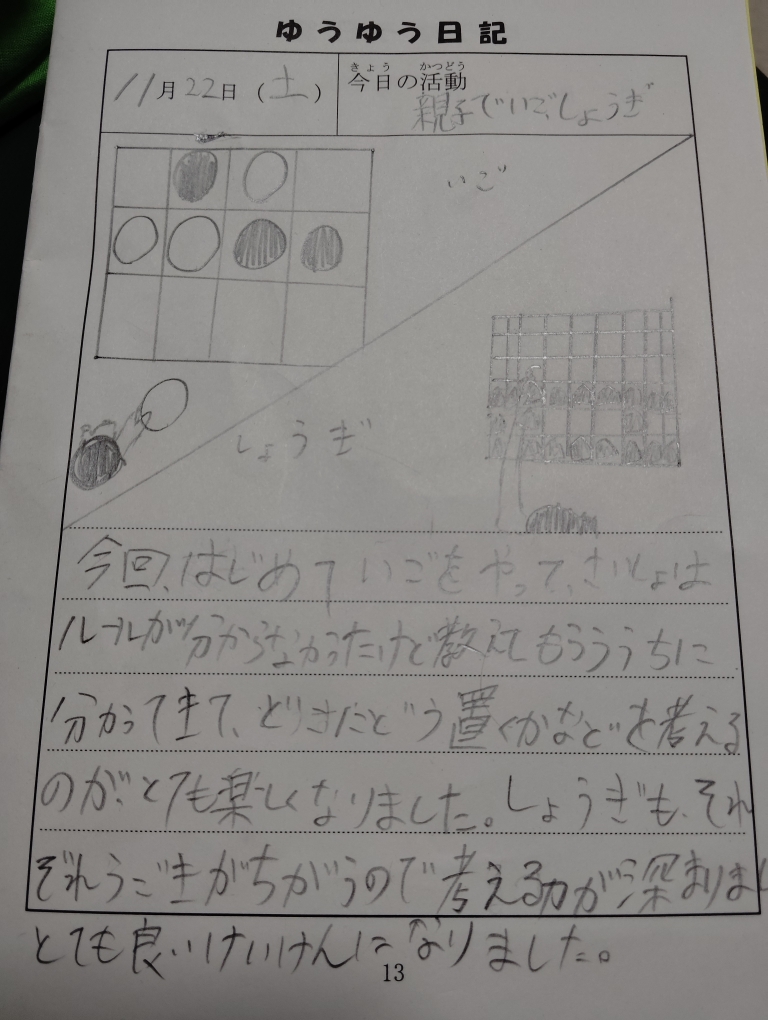 ゆうゆう日記
11月22日(土)
きょう かつどう
今日の活動
親子でいご、しょうぎ
いご
しょうぎ
今回、はじめていごをやって、さいしょは
ルールが分からなかったけど教えてもらううちに
分かってきて、どう置くかなどを考える
のが、とても楽しくなりました。しょうぎも、それ
ぞれうごきがちがうので考える力が深まりまし
とても良いけいけんになりました。
13